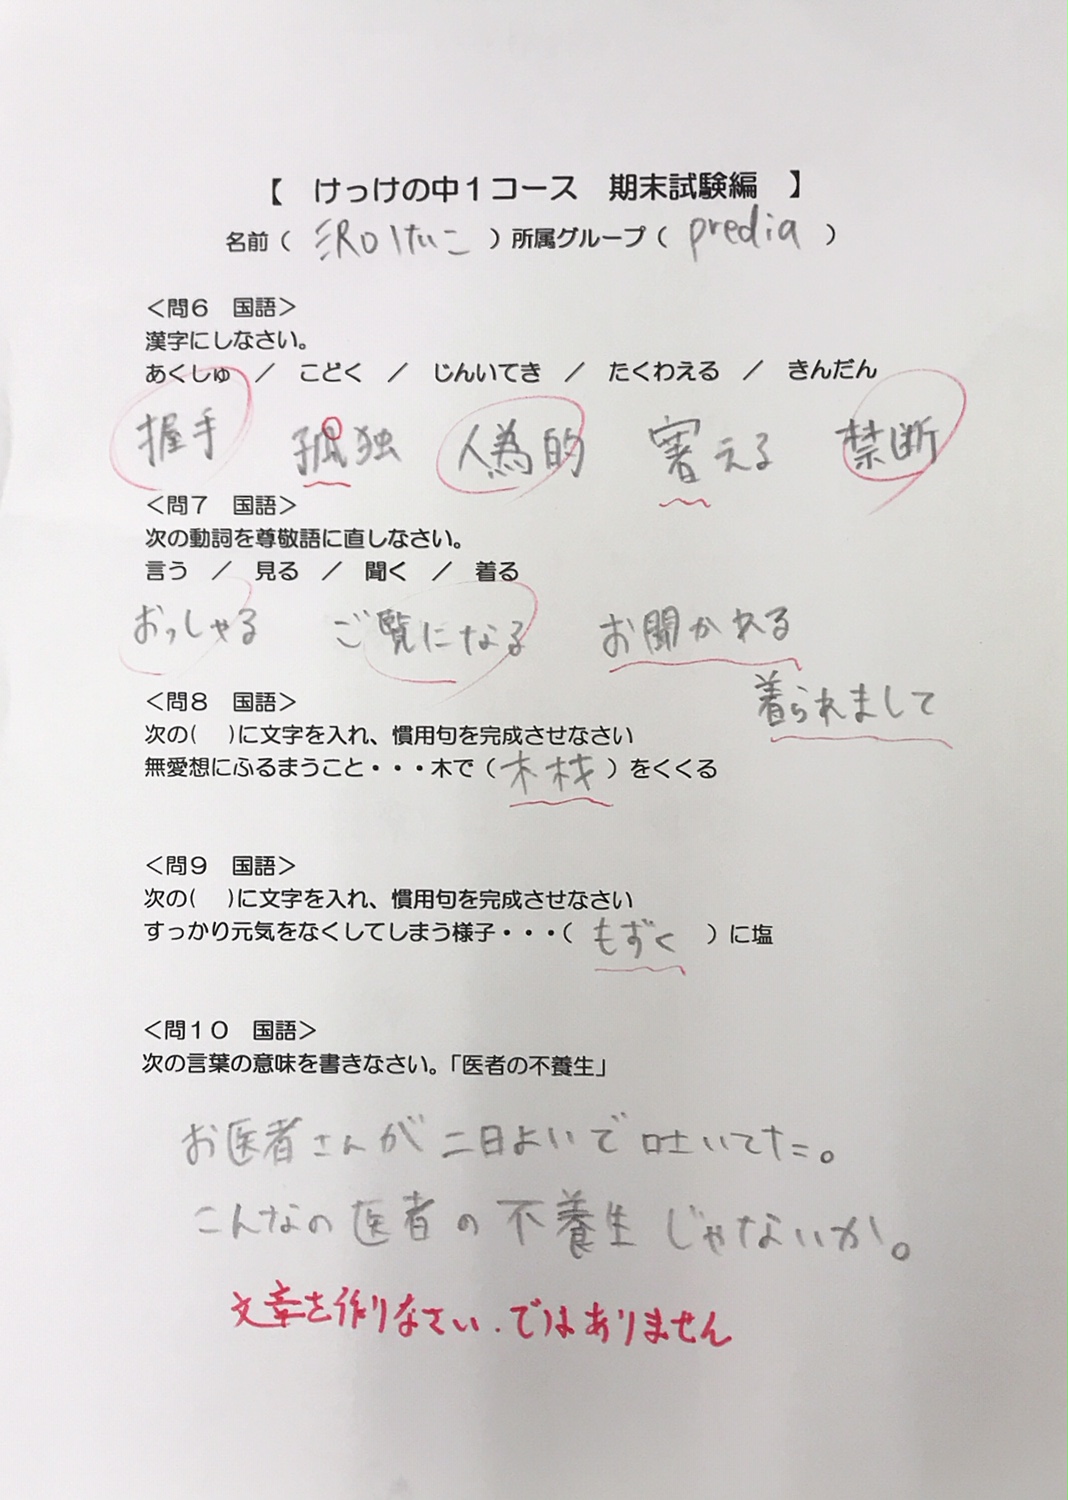 【 けっけの中1コース 期末試験編 】
名前( 沢口けいこ )所属グループ( predia )
<問6 国語>
漢字にしなさい。
あくしゅ / こどく / じんいてき / たくわえる / きんだん
握手 孤独 人為的 える 禁断
<問7 国語>
次の動詞を尊敬語に直しなさい。
言う / 見る / 聞く / 着る
おっしゃる ご覧になる お聞かれる
着られまして
<問8 国語>
次の( )に文字を入れ、慣用句を完成させなさい
無愛想にふるまうこと・・・木で(木材)をくくる
<問9 国語>
次の( )に文字を入れ、慣用句を完成させなさい
すっかり元気をなくしてしまう様子・・・( もずく )に塩
<問10 国語>
次の言葉の意味を書きなさい。「医者の不養生」
お医者さんが二日よいで吐いてた。
こんなの医者の不養生じゃないか。
文章を作りなさい.ではありません